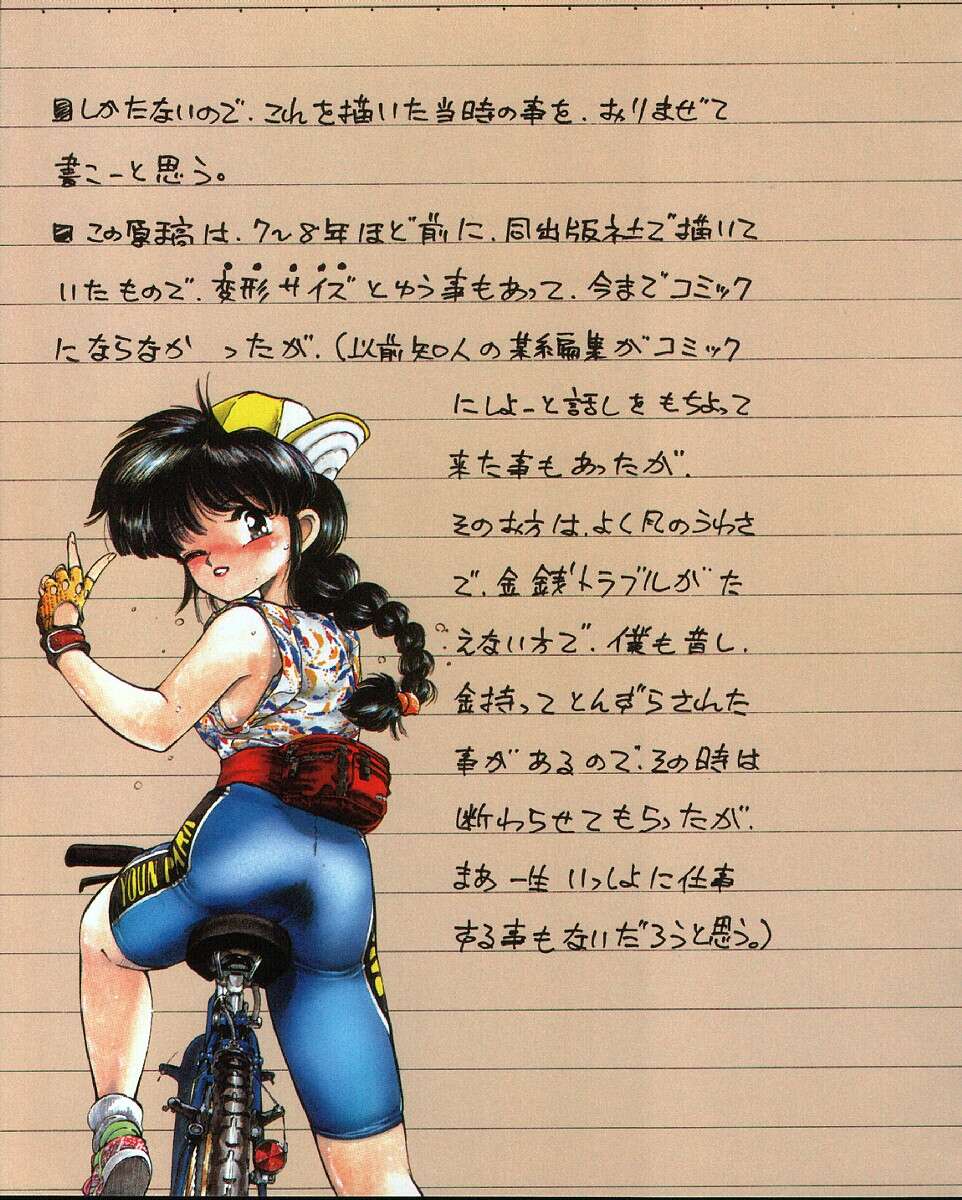 ▨しかたないので、これを描いた当時の事を、おりまぜて
書こーと思う。
▨この原稿は、7〜8年ほど前に、同出版社で描いて
いたもので、変形サイズとゆう事もあって、今までコミック
にならなかったが、(以前知人の某編集がコミック
にしよーと話しをもちよって
来た事もあったが、
そのお方は、よく風のうわさ
で、金銭トラブルがた
えない方で、僕も昔し、
金持ってとんずらされた
事があるので、その時は
断わらせてもらったが、
まあ一生いっしよに仕事
する事もないだろうと思う。)
YOUN PARA